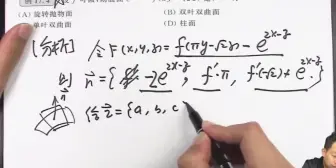 (A) 旋转抛物面 (B) 双叶双曲面
(C) 单叶双曲面 (D) 柱面
[分析] 令 F(x,y,z) = f(πy-√2z) - e^{2x-z}
则 n⃗ = { -2e^{2x-z}, f'·π, f'·(-√2)+e^{2x-z} }
n⃗
令 = {a, b, c